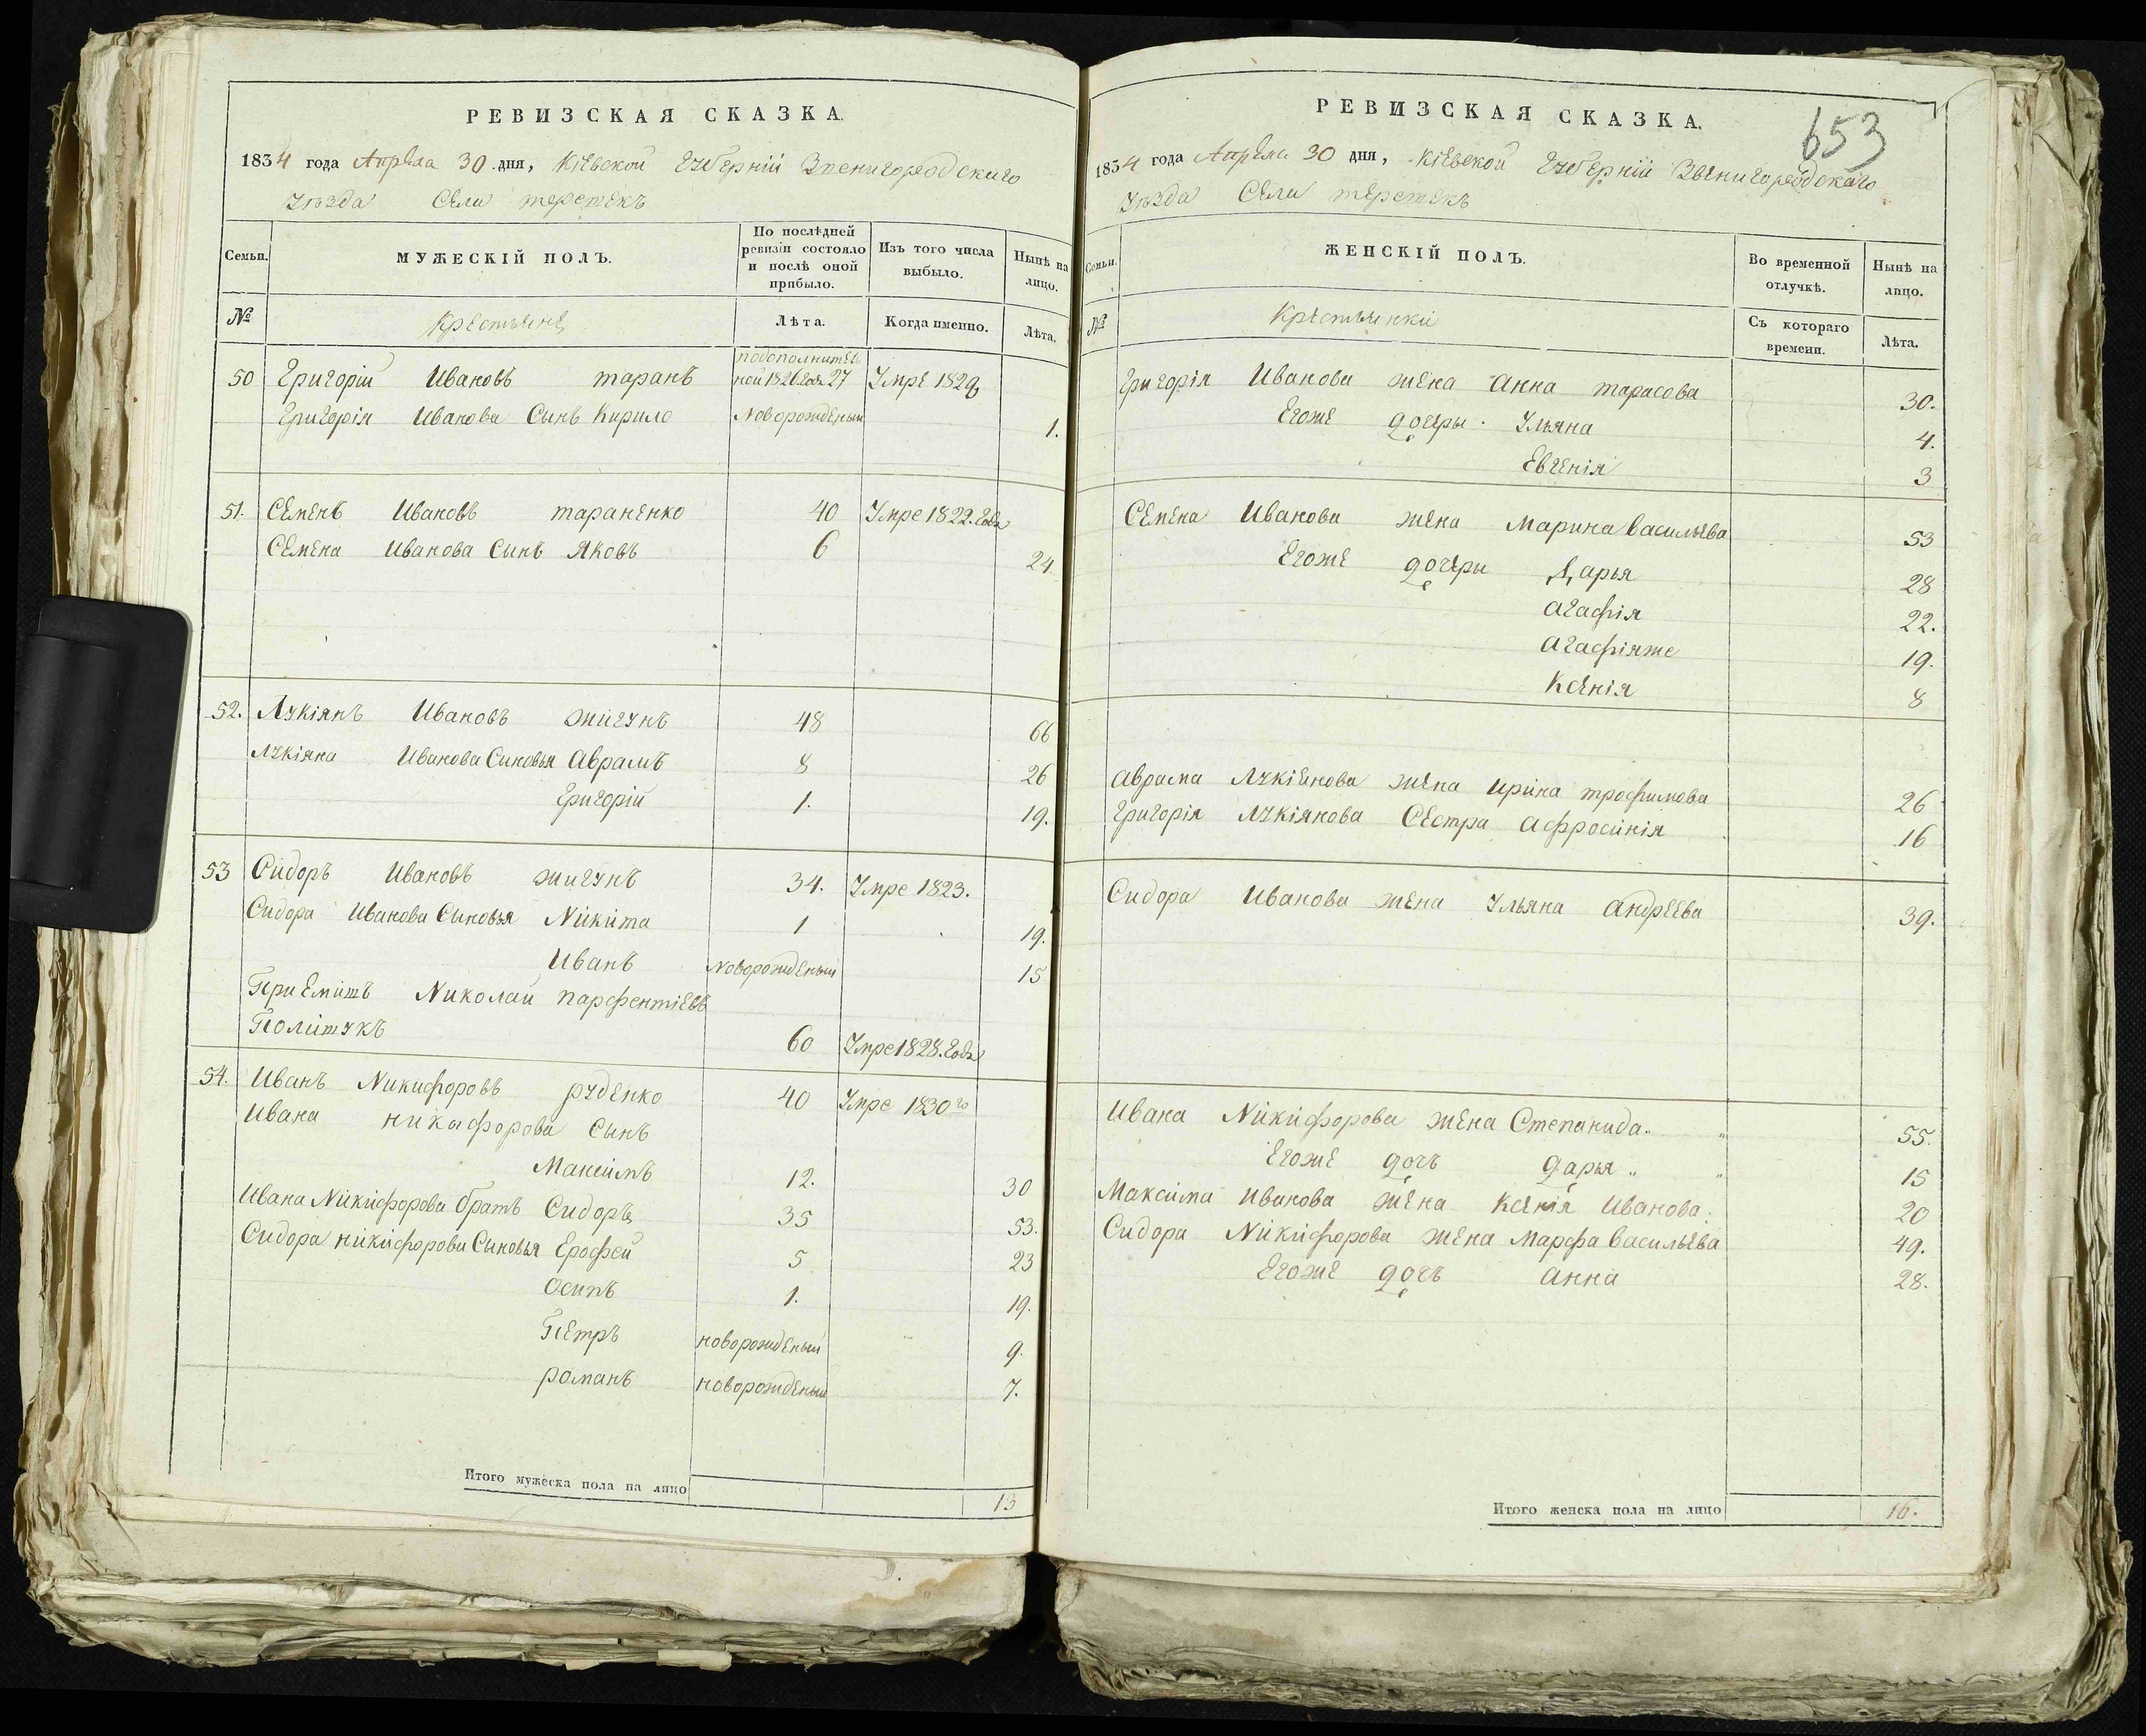 РЕВИЗСКАЯ СКАЗКА.
1834 года Апреля 30 дня, Кіевской Губерніи Звенигородскаго
уѣзда Села
Семьи. МУЖЕСКІЙ ПОЛЪ. По послѣдней ревизіи состояло и послѣ оной прибыло. Изъ того числа выбыло. Нынѣ на лицо.
№ Крестьяне Лѣта. Когда именно. Лѣта.
50 Григорій Ивановъ таранъ подополнитель ной 1826 года 27 Умре 1829
Григорія Иванова Сынъ Кирило Новорожденый 1.
51. Семенъ Ивановъ тараненко 40 Умре 1822. года
Семена Иванова Сынъ Яковъ 6 24.
52. Лукіянъ Ивановъ жигунъ 48 66
Лукіяна Иванова Сыновья Аврамъ 8 26
Григорій 1. 19.
53 Сидоръ Ивановъ жигунъ 34. Умре 1823.
Сидора Иванова Сыновья Никита 1 19.
Иванъ Новорожденый 15
Приемишъ Николай парфентіевъ
Полишукъ 60 Умре 1828. года
54. Иванъ Никифоровъ руденко 40 Умре 1830го
Ивана никифорова Сынъ
Максимъ 12. 30
Ивана Никифорова братъ Сидоръ 35 53.
Сидора никифорова Сыновья Ерофей 5 23
Осипъ 1. 19.
Петръ новорожденый 9.
романъ новорожденый 7.
Итого мужеска пола на лицо 13
РЕВИЗСКАЯ СКАЗКА.
653
1834 года Апреля 30 дня, Кіевской Губерніи Звенигородскаго
уѣзда Села
Семьи. ЖЕНСКІЙ ПОЛЪ. Во временной отлучкѣ. Нынѣ на лицо.
№ Крестьянки Съ котораго времени. Лѣта.
Григорія Иванова жена Анна тарасова 30.
Егоже дочеры Ульяна 4.
Евгенія 3
Семена Иванова жена Марина васильева 53
Егоже дочеры Дарья 28
Агафія 22.
Агафіяже 19.
Ксенія 8
Аврама Лукіянова жена ирина трофимова 26
Григорія Лукіянова Сестра Афросинія 16
Сидора Иванова жена Ульяна Андреева 39.
Ивана Никифорова жена Степанида „ „ 55.
Егоже дочъ дарья „ „ 15
Максима Иванова жена Ксенія Иванова. 20
Сидора Никифорова жена Марфа васильева 49.
Егоже дочъ Анна 28.
Итого женска пола на лицо 16.